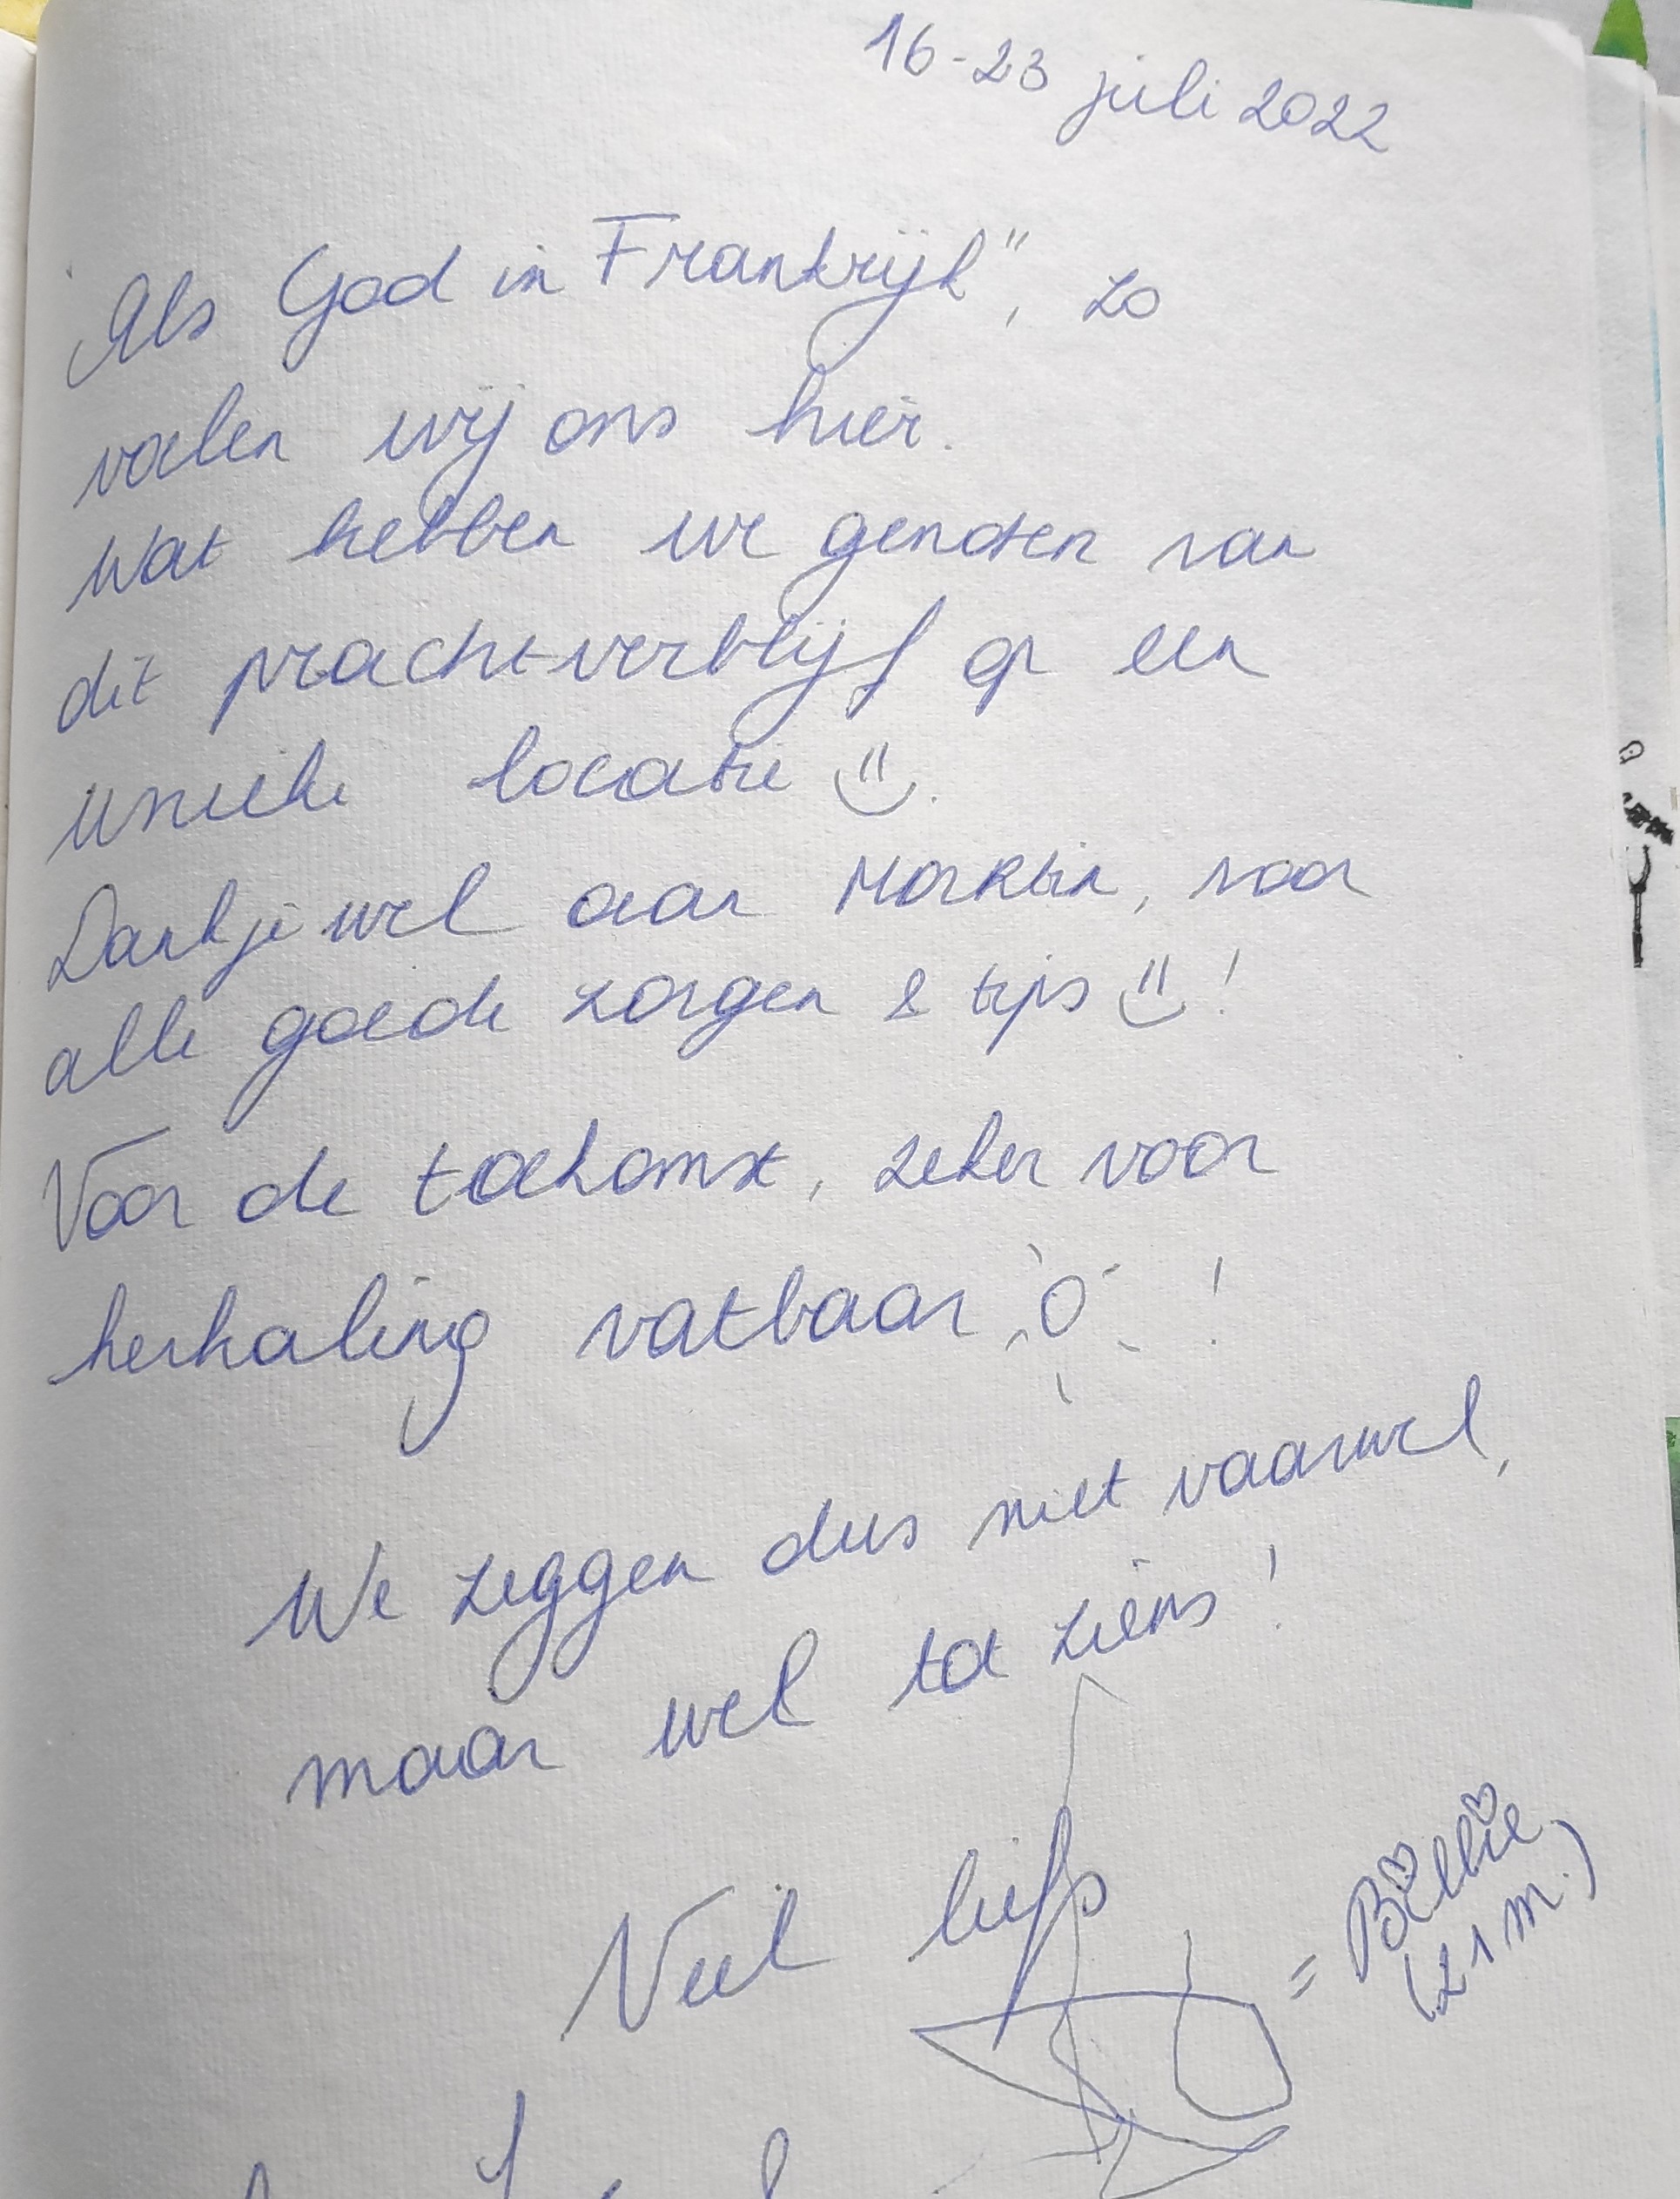 16-23 juli 2022
"Als God in Frankrijk", zo
voelen wij ons hier.
Wat hebben we genoten van
dit pracht-verblijf op een
unieke locatie
Dankjewel aan , voor
alle goede zorgen & tips !
Voor de toekomst, zeker voor
herhaling vatbaar !
We zeggen dus niet vaarwel,
maar wel tot ziens!
Veel liefs
= Billie
(21 m.)